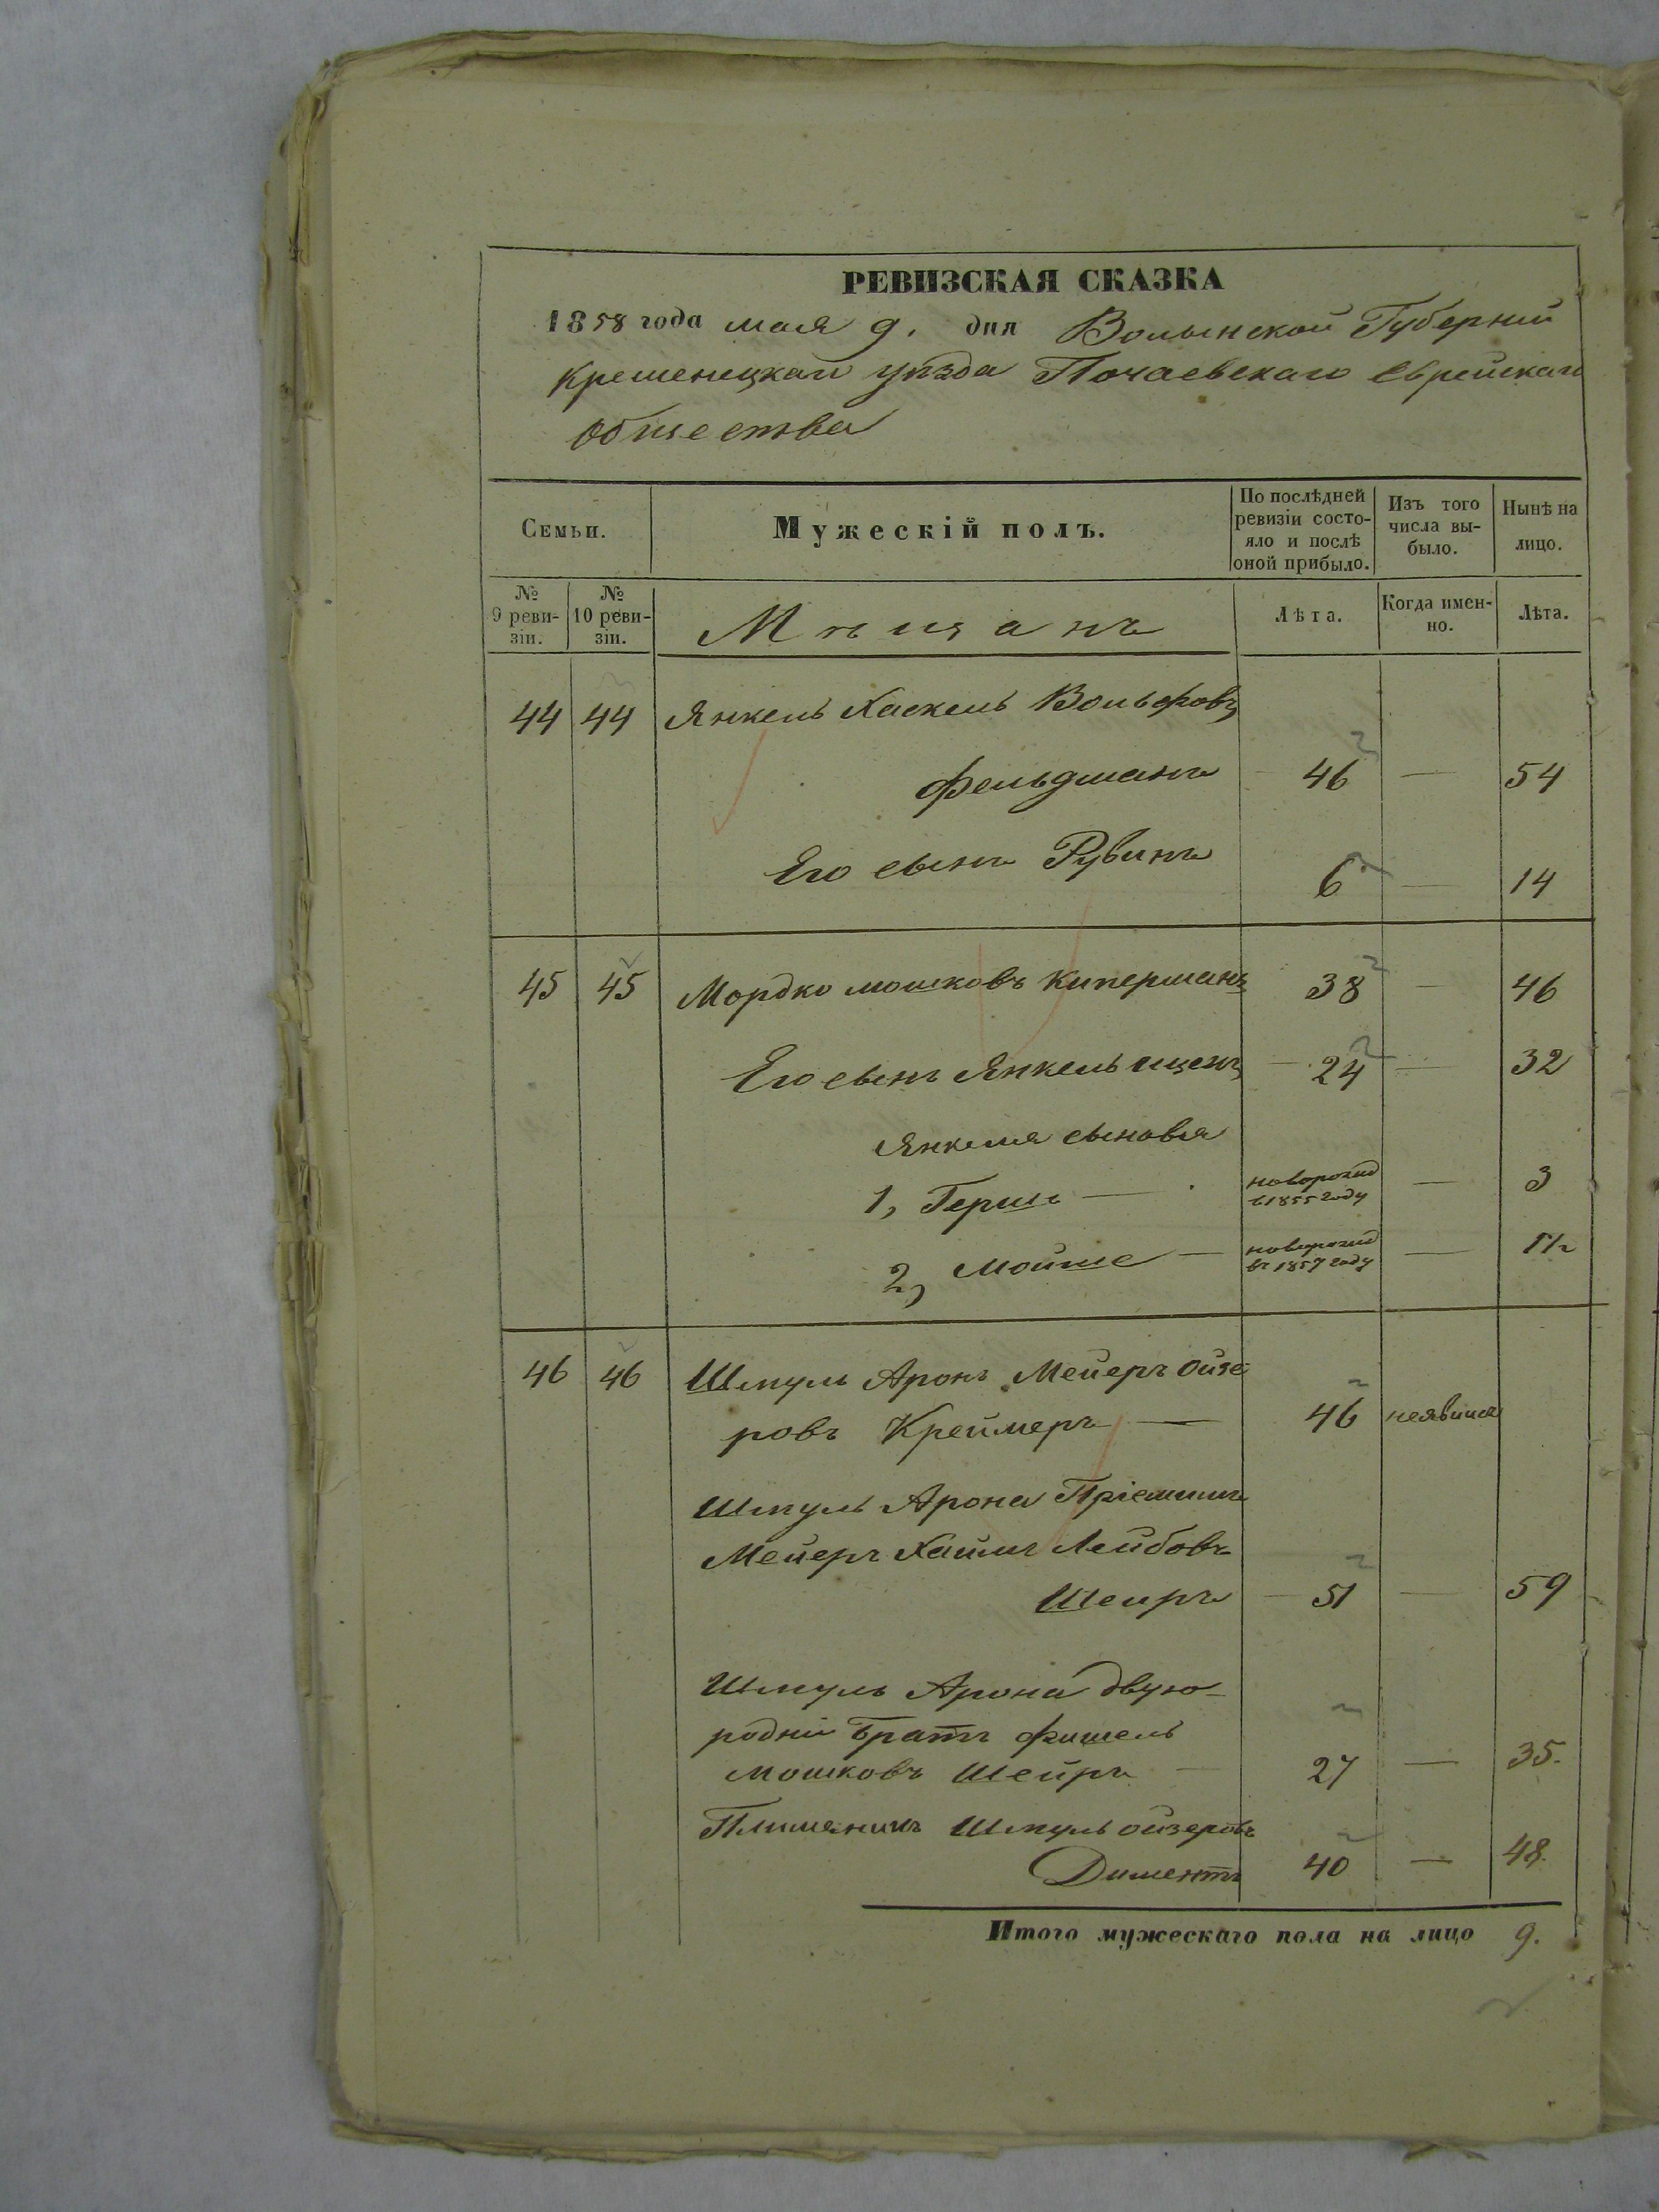 РЕВИЗСКАЯ СКАЗКА
1858 года мая 9. дня Волынской Губерніи
Кременецкаго уѣзда Почаевскаго Еврейскаго
Общества
Семьи.
Мужескій полъ.
По послѣдней ревизіи состо-
яло и послѣ оной прибыло.
Изъ того числа вы-
было.
Нынѣ на лицо.
№ 9 реви-
зіи.
№ 10 реви-
зіи.
Мѣщанъ
Лѣта.
Когда имен-
но.
Лѣта.
44 44 Янкель Хаскель Вольфовъ
Фельдманъ 46 — 54
Его сынъ Рувинъ 6 — 14
45 45 Мордко Мошковъ Киперманъ 38 — 46
Его сынъ Янкель — 24 — 32
Янкеля сыновья
1, Гершь — новорожд в 1855 году — 3
2, Мойше — новорожд въ 1857 году — 1½
46 46 Шмуль Аронъ Мейеръ Ойзе-
ровъ Креймеръ — 46 неявился
Шмуль Арона Пріемышъ
Мейеръ Хаимъ Лейбовъ
Шейръ — 51 — 59
Шмуль Арона двую-
родній Братъ Фишель
Мошковъ Шейръ — 27 — 35.
Шмуль Ойзеровъ
Диментъ 40 — 48.
Итого мужескаго пола на лицо 9.